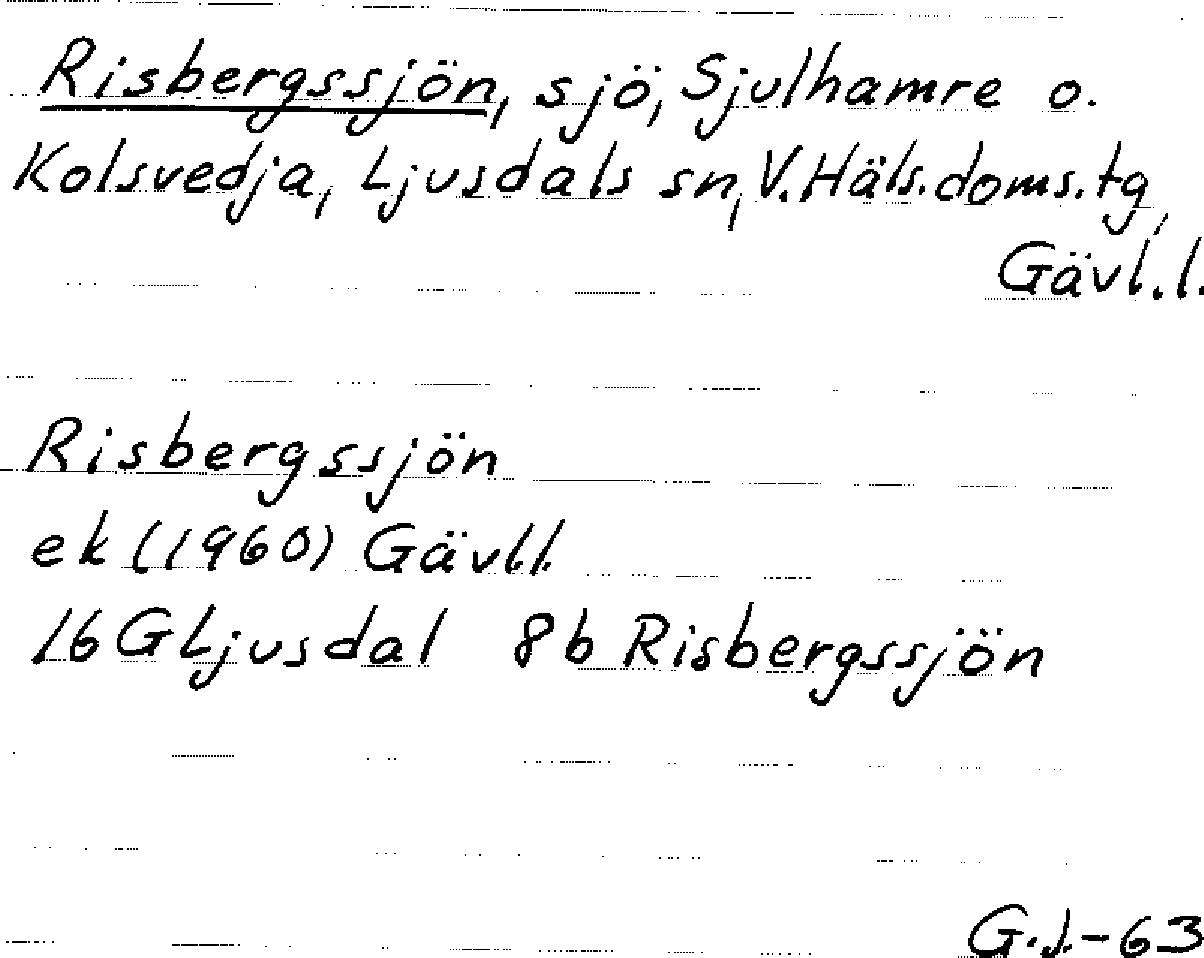 Risbergssjön, sjö, Sjulhamre o.
Kolsvedja, Ljusdals sn, V. Häls. doms. tg,
Gävl. l.
Risbergssjön
ek (1960) Gävl.l.
16 G Ljusdal 8b Risbergssjön
G.J.-63